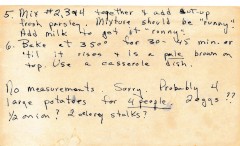 5. Mix #2, 3 & 4 together & add cut-up
fresh parsley. Mixture should be "runny".
Add milk to get it "runny".
6. Bake at 350° for 30-45 min. or
'til it rises & is a pale brown on
top. Use a casserole dish.
No measurements. Sorry. Probably 4
large potatoes for 4 people. 2 eggs??
½ onion? 2 celery stalks?